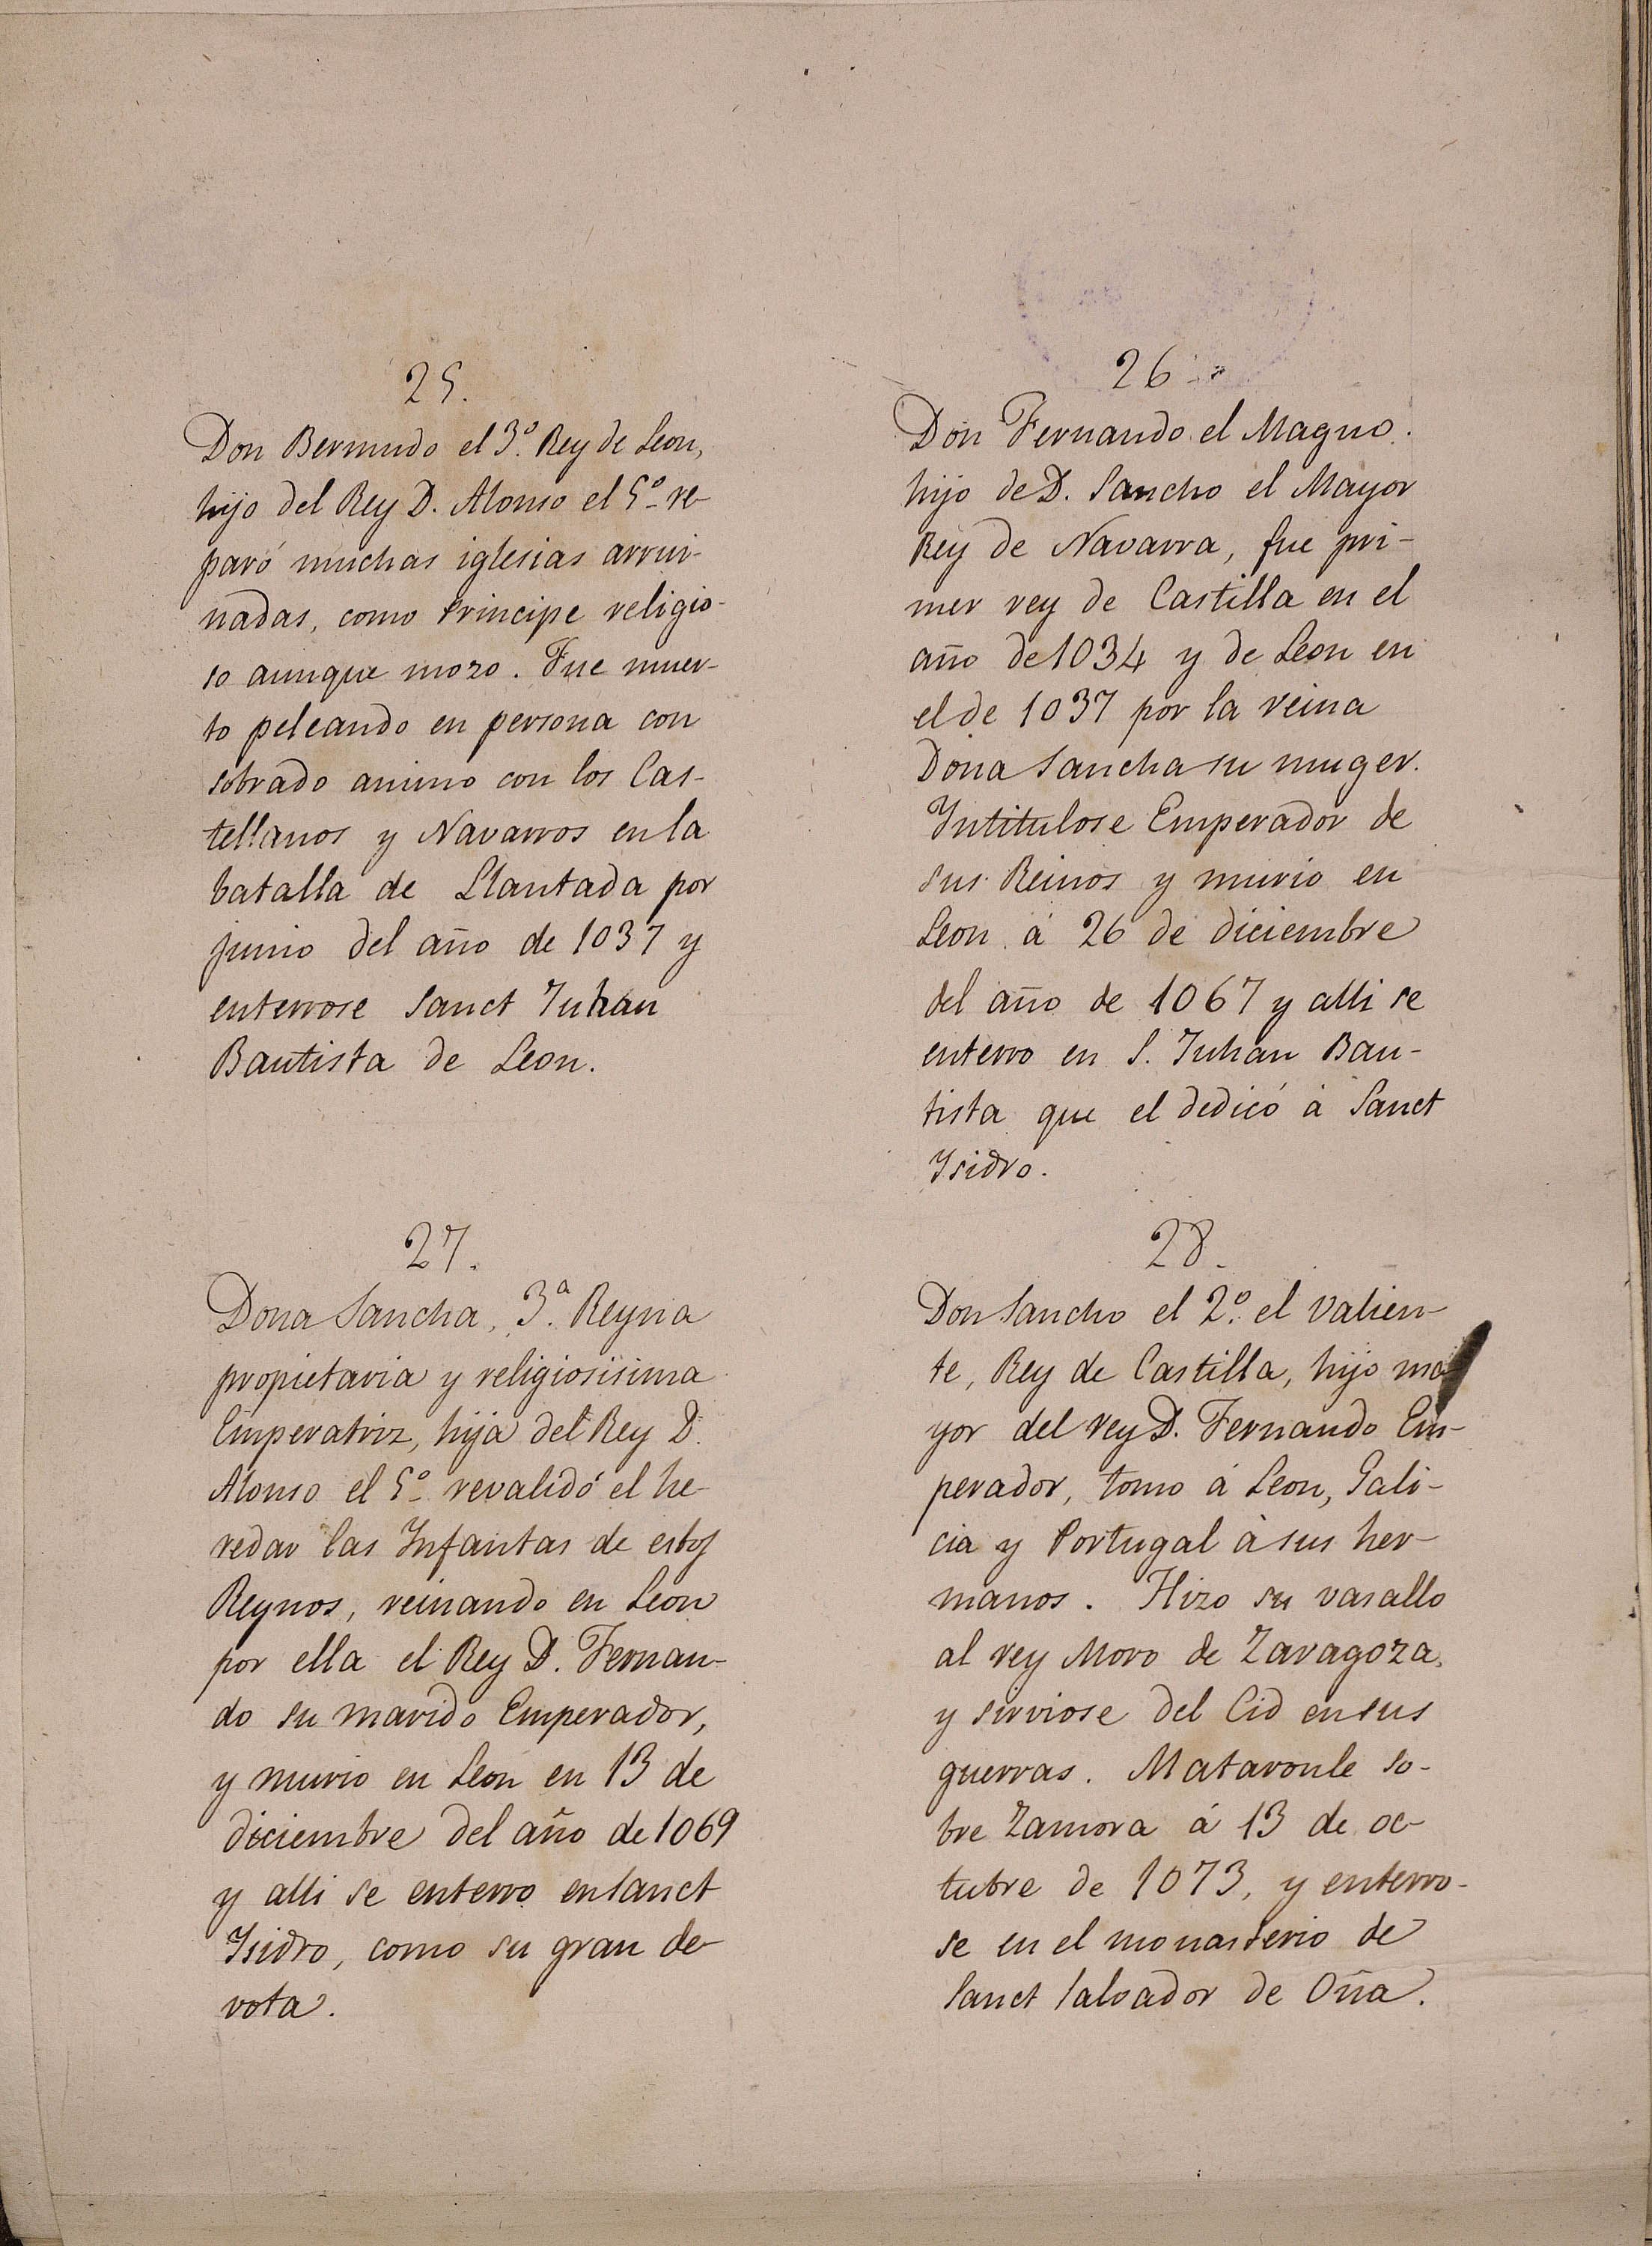 25.
Don Bermudo el 3º. Rey de Leon,
hijo del Rey D. Alonso el 5º re-
paró muchas iglesias arrui-
nadas, como Principe religio-
so aunque mozo. Fue muer-
to peleando en persona con
sobrado animo con los Cas-
tellanos y Navarros en la
batalla de Llantada por
junio del año de 1037 y
enterrose Sanct Juhan
Bautista de Leon.
26
Don Fernando el Magno.
hijo de D. Sancho el Mayor
Rey de Navarra, fue pri-
mer rey de Castilla en el
año de 1034 y de Leon en
el de 1037 por la reina
Dona Sancha su muger.
Intitulose Emperador de
sus Reinos y murio en
Leon á 26 de diciembre
del año de 1067 y alli se
enterro en S. Juhan Bau-
tista que el dedicó á Sanct
Isidro.
27.
Dona Sancha, 3ª. Reyna
propietaria y religiosisima
Emperatriz, hija del Rey D.
Alonso el 5º revalidó el he-
redar las Infantas de estos
Reynos, reinando en Leon
por ella el Rey D. Fernan-
do su marido Emperador,
y murio en Leon en 13 de
diciembre del año de 1069
y alli se enterro en Sanct
Isidro, como su gran de-
vota.
28.
Don Sancho el 2º. el Valien-
te, Rey de Castilla, hijo ma-
yor del rey D. Fernando Em-
perador, tomo á Leon, Gali-
cia y Portugal á sus her-
manos. Hizo su vasallo
al rey Moro de Zaragoza,
y sirviose del Cid en sus
guerras. Mataronle so-
bre Zamora á 13 de oc-
tubre de 1073, y enterro-
se en el monasterio de
Sanct Salvador de Oña.